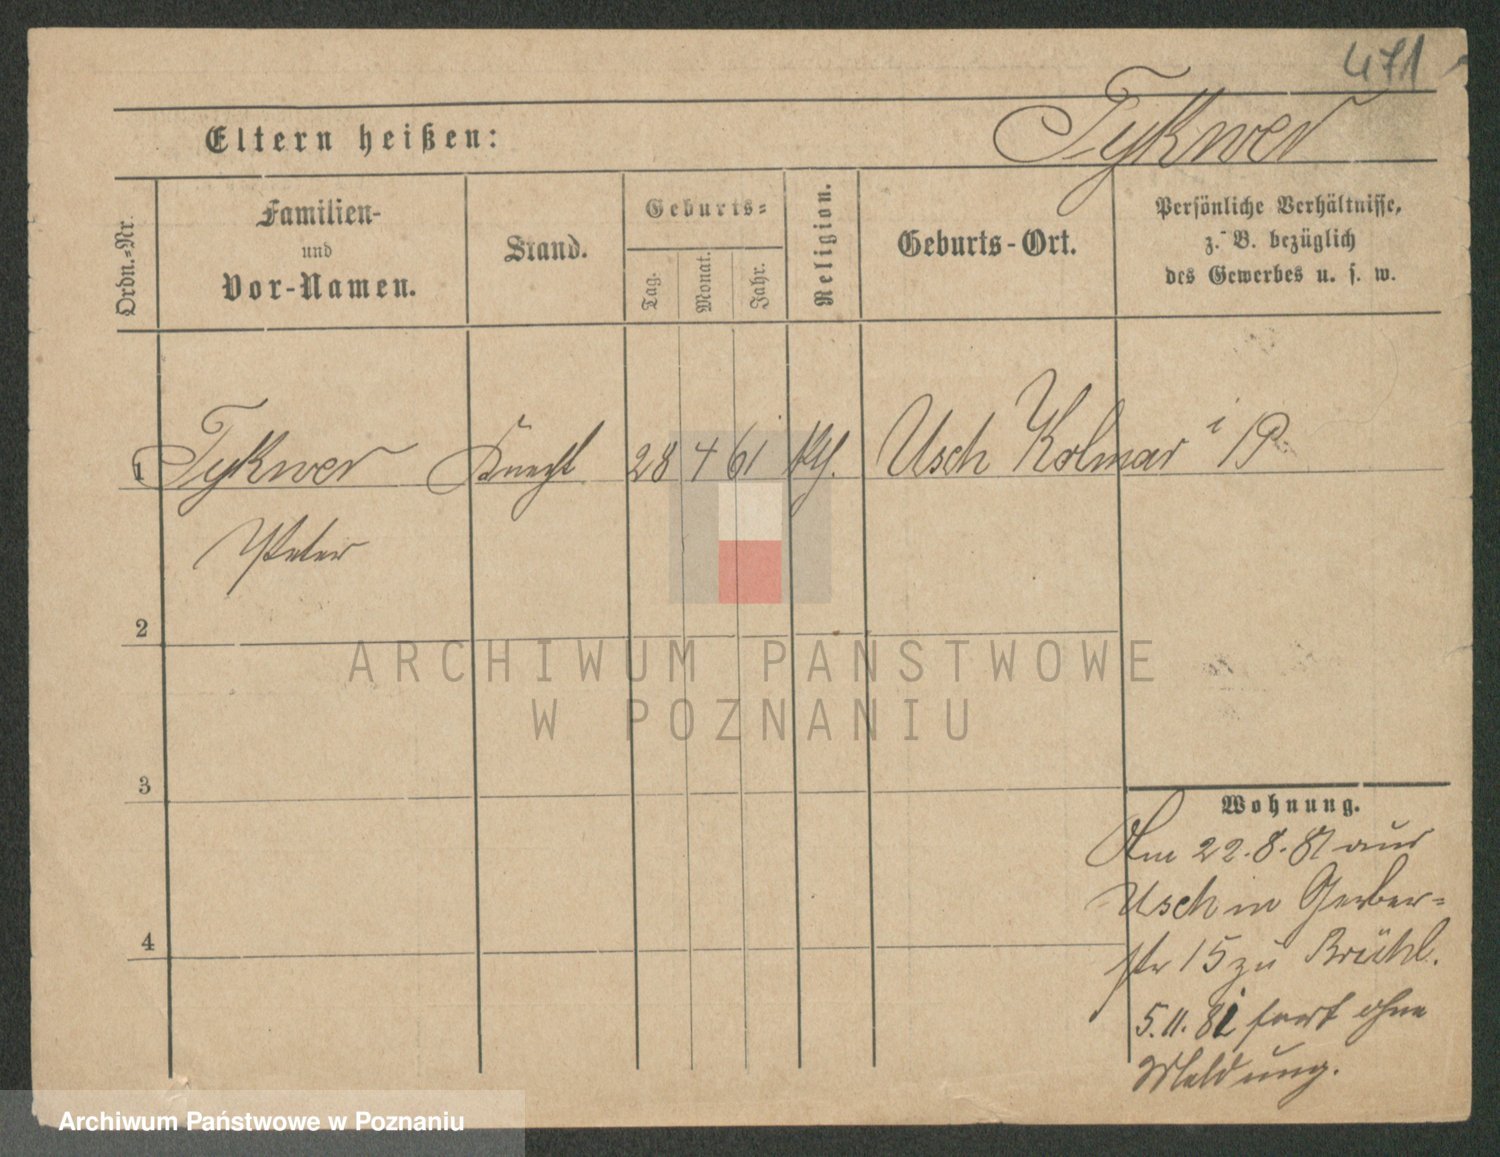 471
Eltern heißen:
Tykwer
Ordn.-Nr.
Familien-
und
Vor-Namen.
Stand.
Geburts-
Tag.
Monat.
Jahr.
Religion.
Geburts-Ort.
Persönliche Verhältnisse,
z. B. bezüglich
des Gewerbes u. s. w.
1 Tykwer Knecht 28 4 61 kth. Usch Kolmar i/P
Peter
2
ARCHIWUM PAŃSTWOWE
W POZNANIU
3
Wohnung.
Am 22.8.81 aus
Usch in Gerber-
str 15 zu Brühl.
4
5.11.81 fort ohne
Meldung.
Archiwum Państwowe w Poznaniu